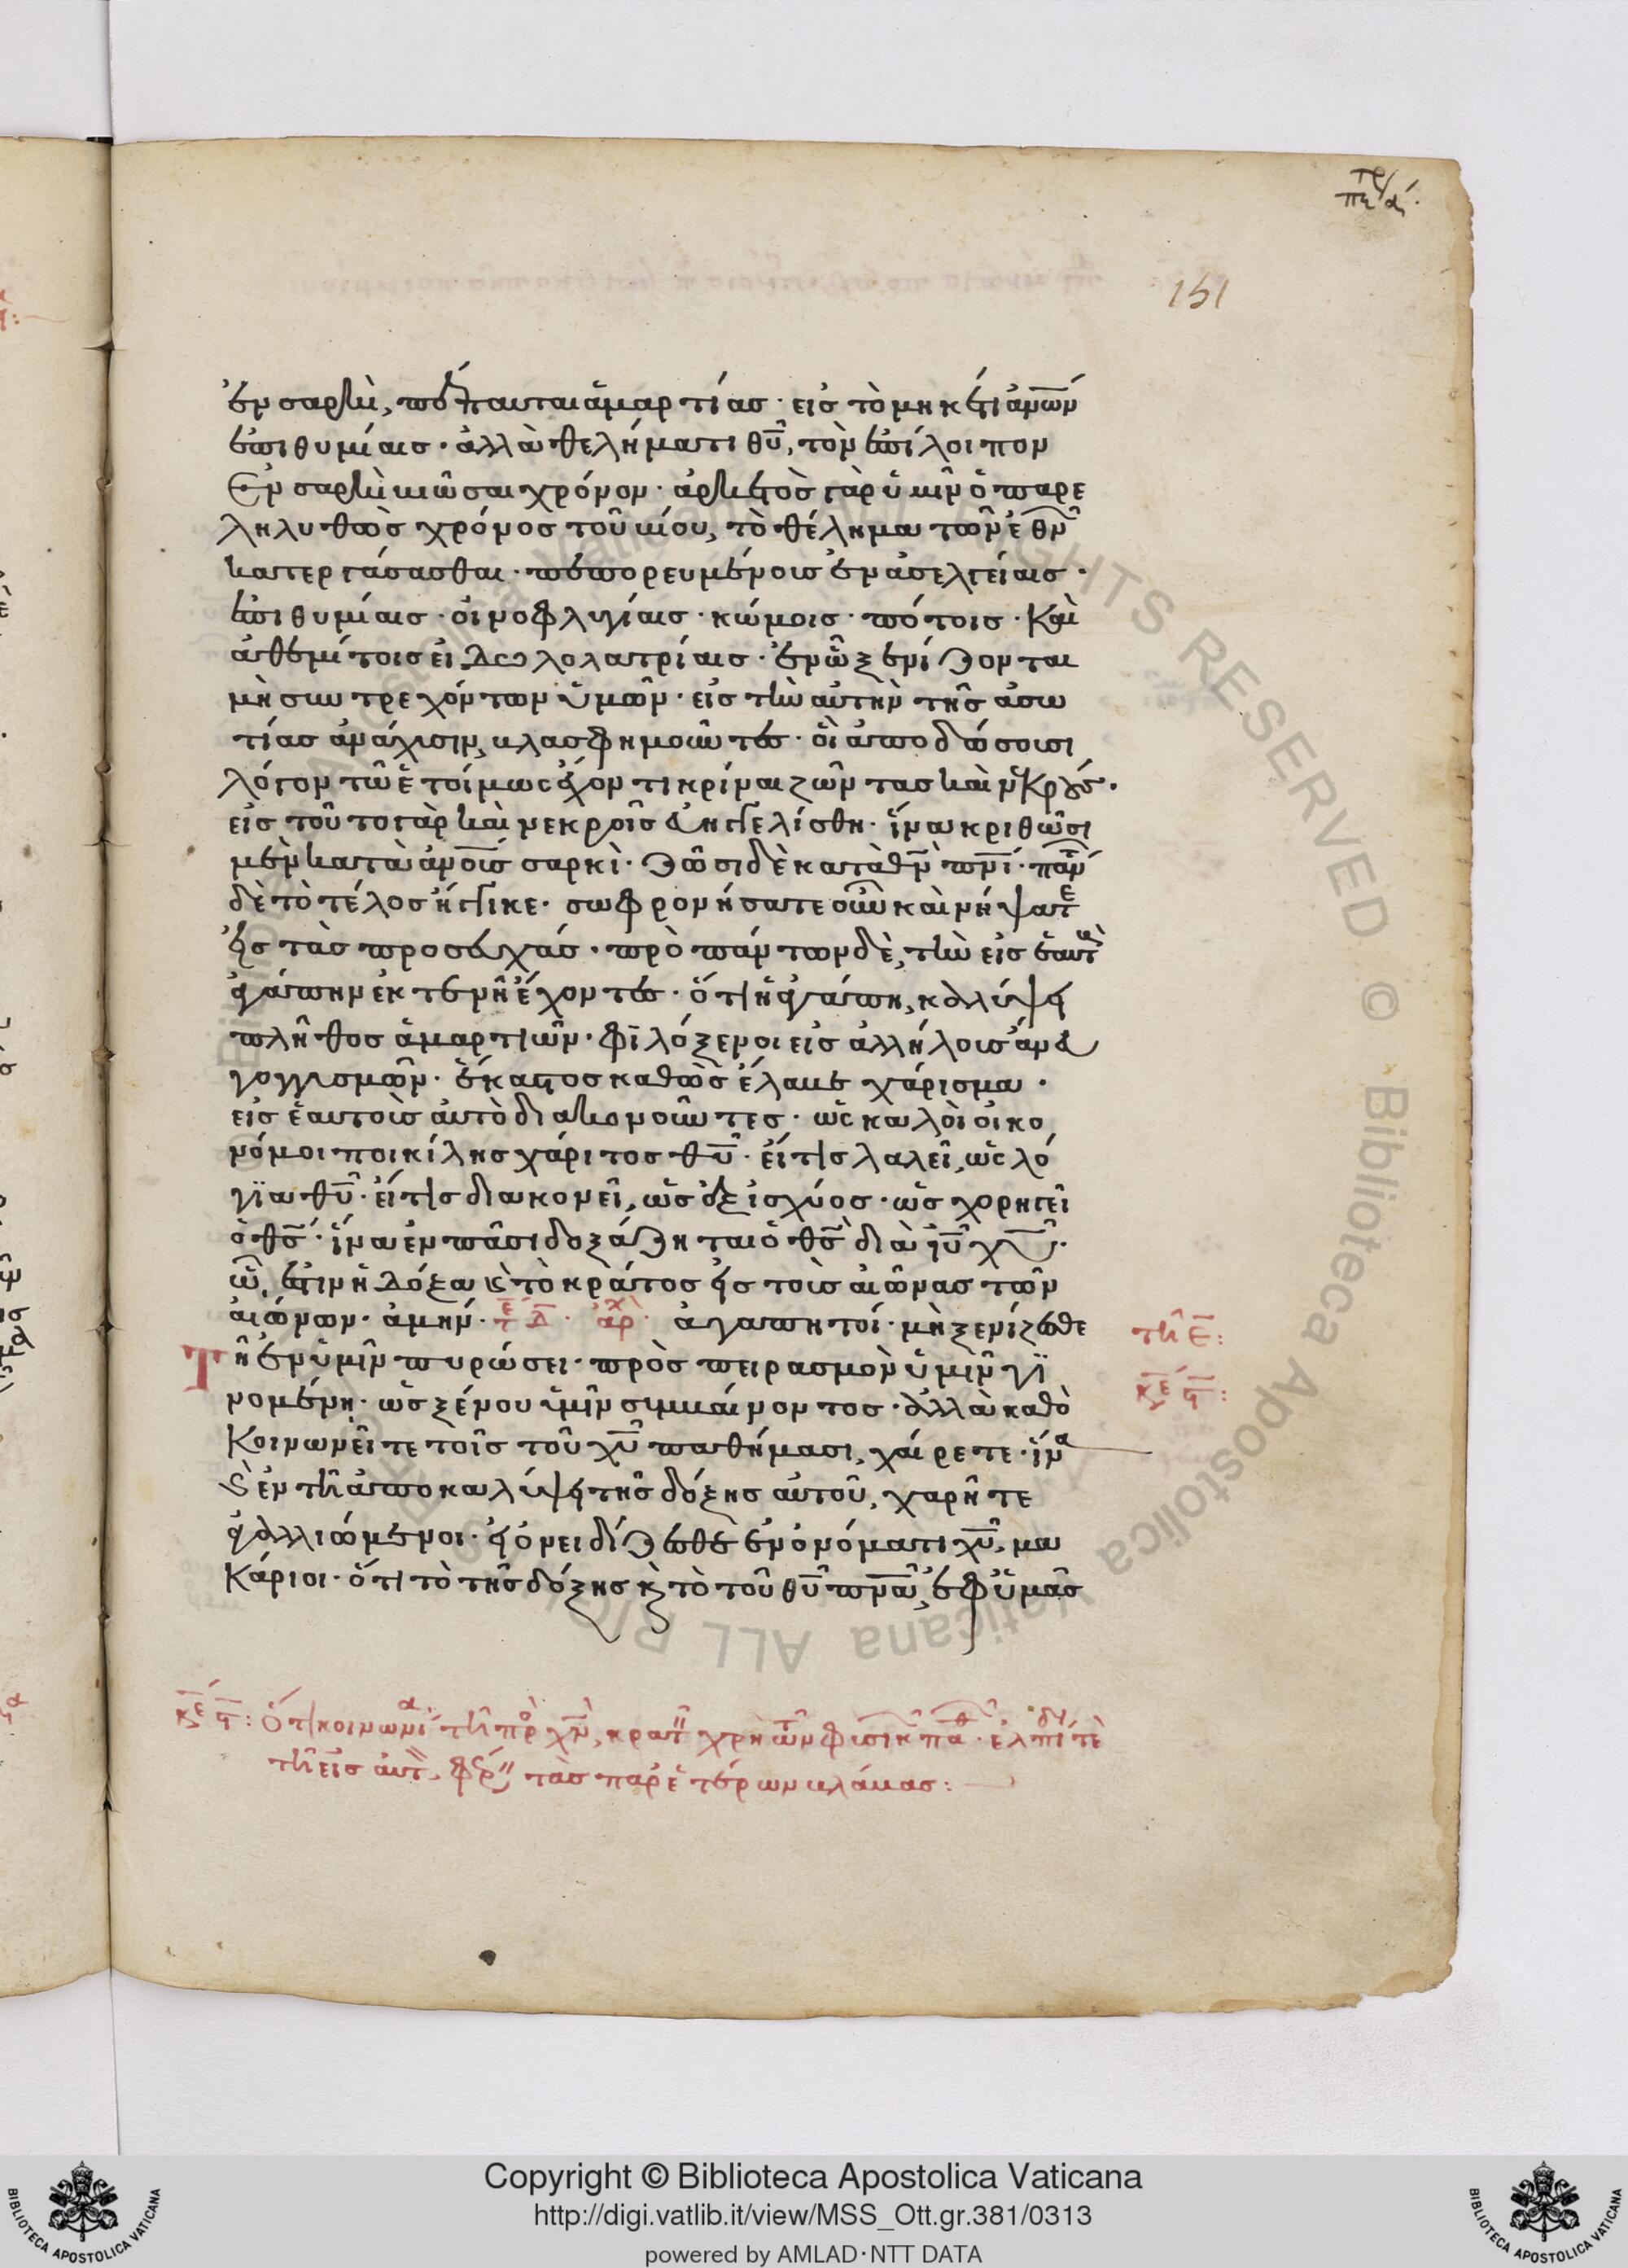 151
ἐν σαρκὶ, πέπαυται ἁμαρτίας · εἰς τὸ μηκέτι ἀν̅ω̅ν
ἐπιθυμίαις · ἀλλὰ θελήματι θ̅υ̅, τὸν ἐπίλοιπον
Ἐν σαρκὶ βιῶσαι χρόνον · ἀρκετὸς γὰρ ὑμῖν ὁ παρε
ληλυθὼς χρόνος τοῦ βίου, τὸ θέλημα τῶν ἐθν
κατεργάσασθαι · πεπορευμένους ἐν ἀσελγείαις ·
ἐπιθυμίαις · οἰνοφλυγίαις · κώμοις · πότοις · Καὶ
ἀθεμίτοις εἰδωλολατρίαις · ἐν ᾧ ξενίζονται
μὴ συντρεχόντων ὑμῶν · εἰς τὴν αὐτὴν τῆς ἀσω
τίας ἀνάχυσιν, βλασφημοῦντες · οἳ ἀποδώσουσι
λόγον τῶ ἑτοίμως ἔχοντι κρίναι ζῶντας καὶ νεκρούς ·
εἰς τοῦτο γὰρ καὶ νεκροῖς εὐηγγελίσθη · ἵνα κριθῶσι
μὲν κατὰ ἀν̅ο̅υ̅ς σαρκὶ · ζῶσι δὲ κατὰ θ̅ν̅ π̅ν̅ι̅ · πάν
δὲ τὸ τέλος ἤγγικε · σωφρονήσατε οὖν καὶ νήψατε
εἰς τὰς προσευχάς · πρὸ πάντων δὲ, τὴν εἰς ἑαυτ
ἀγάπην ἐκτενῆ ἔχοντες · ὅτι ἡ ἀγάπη, καλύψει
πλῆθος ἁμαρτιῶν · φιλόξενοι εἰς ἀλλήλους ἄνευ
γογγυσμῶν · ἕκαστος καθὼς ἔλαβε χάρισμα ·
εἰς ἑαυτοὺς αὐτὸ διακονοῦντες · ὡς καλοὶ οἰκο
νόμοι ποικίλης χάριτος θ̅υ̅ · εἴ τις λαλεῖ, ὡς λό
για θ̅υ̅ · εἴ τις διακονεῖ, ὡς ἐξ ἰσχύος · ὡς χορηγεῖ
ὁ θ̅ς̅ · ἵνα ἐν πᾶσι δοξάζηται ὁ θ̅ς̅ διὰ ι̅υ̅ χ̅υ̅ ·
ᾧ, ἐστιν ἡ δόξα κ̀ τὸ κράτος εἰς τοὺς αἰῶνας τῶν
αἰώνων · ἀμήν · τε Δ · ἀρχ · ἀγαπητοί · μὴ ξενίζεσθε
τῆ ε̅ :
Τῆ ἐν ὑμῖν πυρώσει · πρὸς πειρασμὸν ὑμῖν γϊ
νομένη · ὡς ξένου ὑμῖν συμβαίνοντος · ἀλλὰ καθὸ
Κοινωνεῖτε τοῖς τοῦ χ̅υ̅ παθήμασι, χαίρετε · ἵνα
κ̀ ἐν τῆ ἀποκαλύψει τῆς δόξης αὐτοῦ, χαρῆτε
ἀγαλλιώμενοι · εἰ ὀνειδίζεσθε ἐν ὀνόματι χ̅υ̅, μα
Κάριοι · ὅτι τὸ τῆς δόξης κ̀ τὸ τοῦ θ̅υ̅ π̅ν̅α̅, ἐφ ὑμᾶς
τὰς παρ ἑτέρων βλάβας :
Copyright © Biblioteca Apostolica Vaticana
http://digi.vatlib.it/view/MSS_Ott.gr.381/0313
powered by AMLAD·NTT DATA